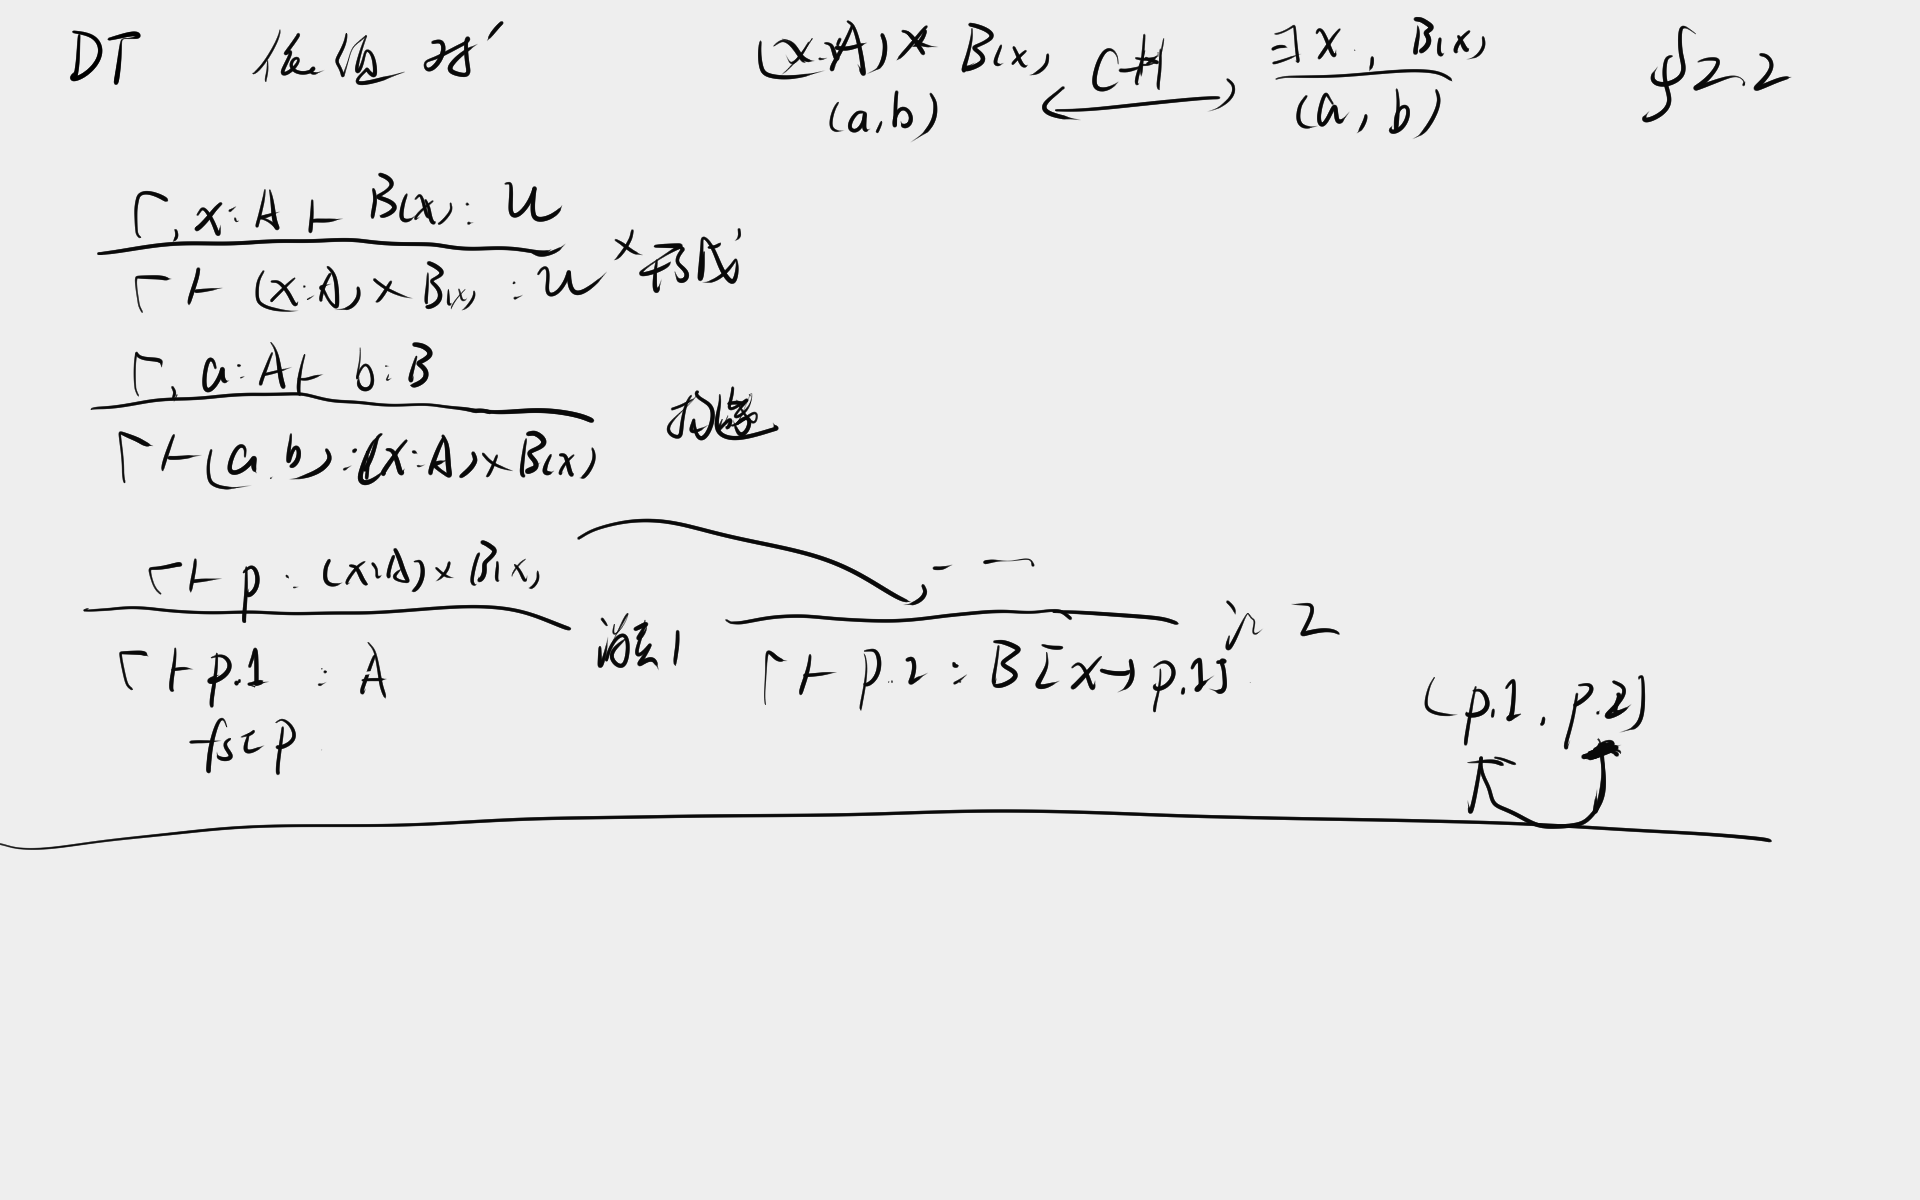 DT 依值对 (x:A) × B(x) CH ∃x, B(x) §2.2
(a,b) (a, b)
Γ, x:A ⊢ B(x): U
Γ ⊢ (x:A) × B(x) : U ×形成
Γ, a:A ⊢ b:B
Γ ⊢ (a, b) : (x:A) × B(x) 构造
Γ ⊢ p : (x:A) × B(x)
Γ ⊢ p.1 : A 消去1
fst p
Γ ⊢ p.2 : B[x→p.1] 2
(p.1, p.2)